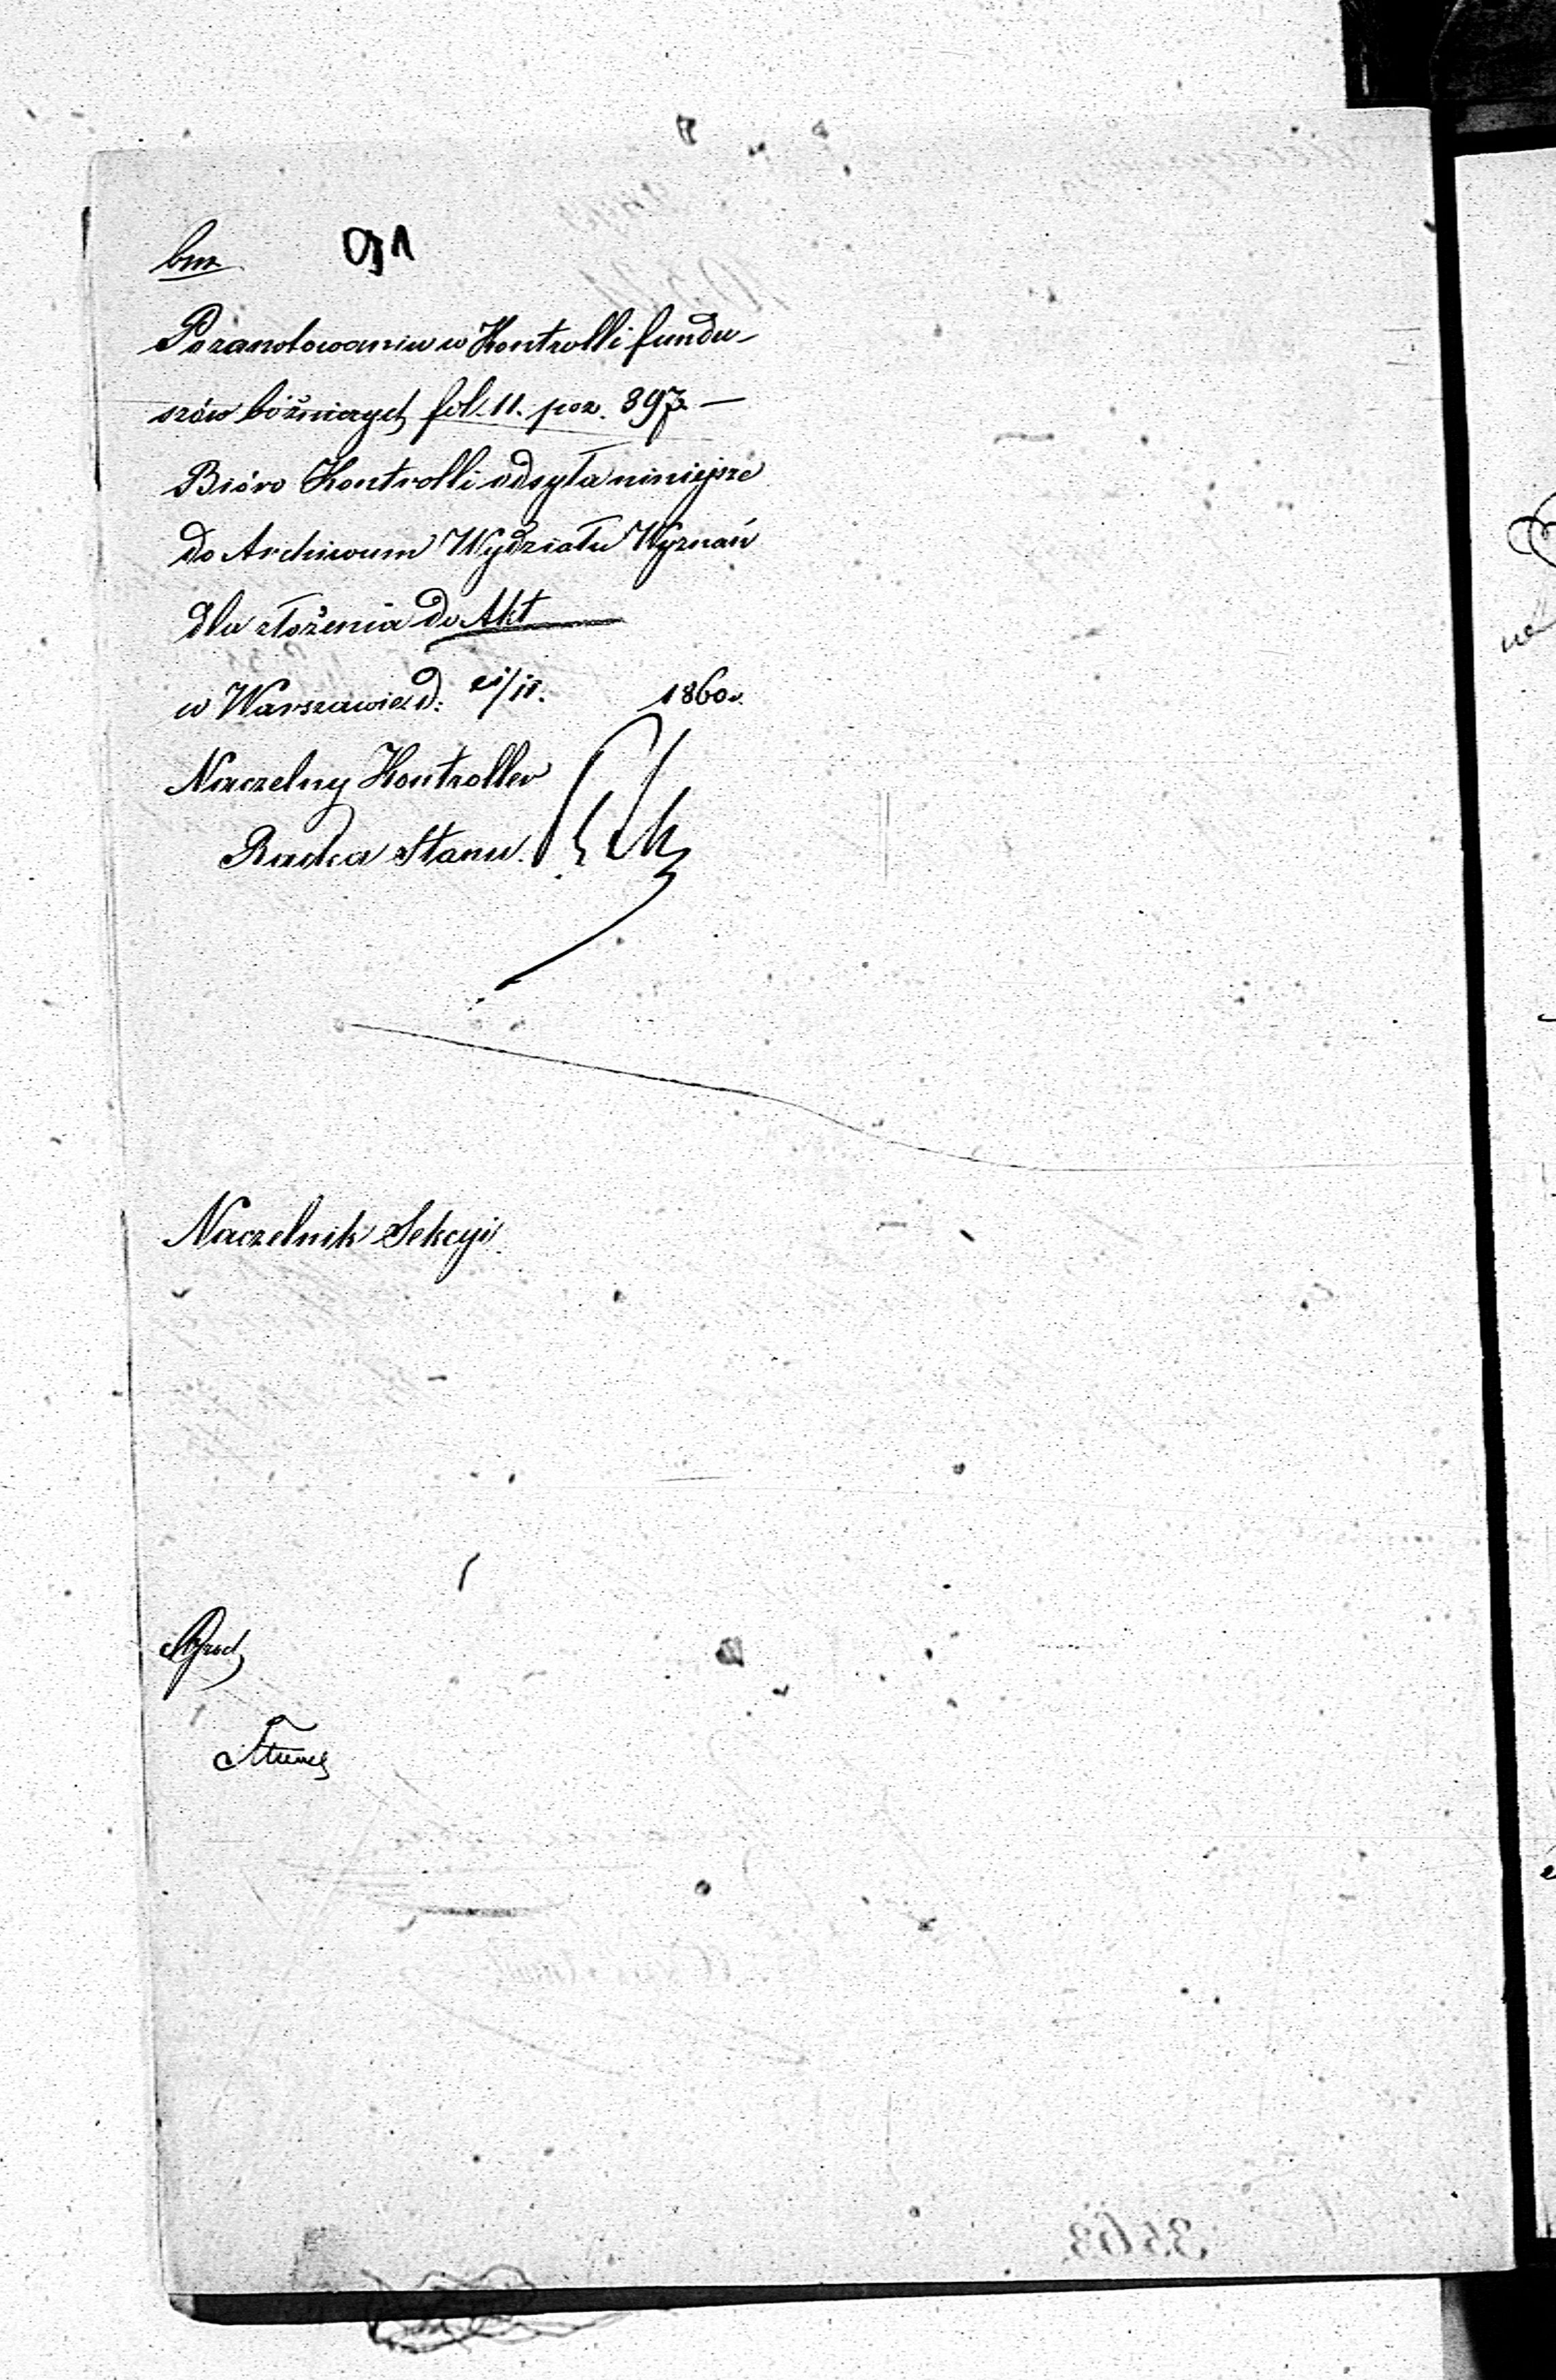 Pozanotowaniu w Kontrolli fundu-
szów bóżniczych fol. 11. poz. 897. —
Bióro Kontrolli odsyła niniejsze
do Archiwum Wydziału Wyznań
dla złożenia do Akt
w Warszawie d: 1860 r.
Naczelny Kontroller
Radca Stanu.
Naczelnik Sekcyi